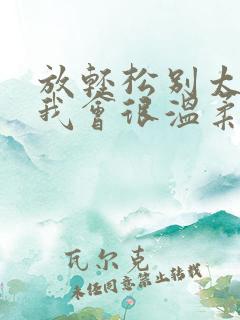 放轻松别太
我会很温柔
瓦尔克
未经同意禁止转载